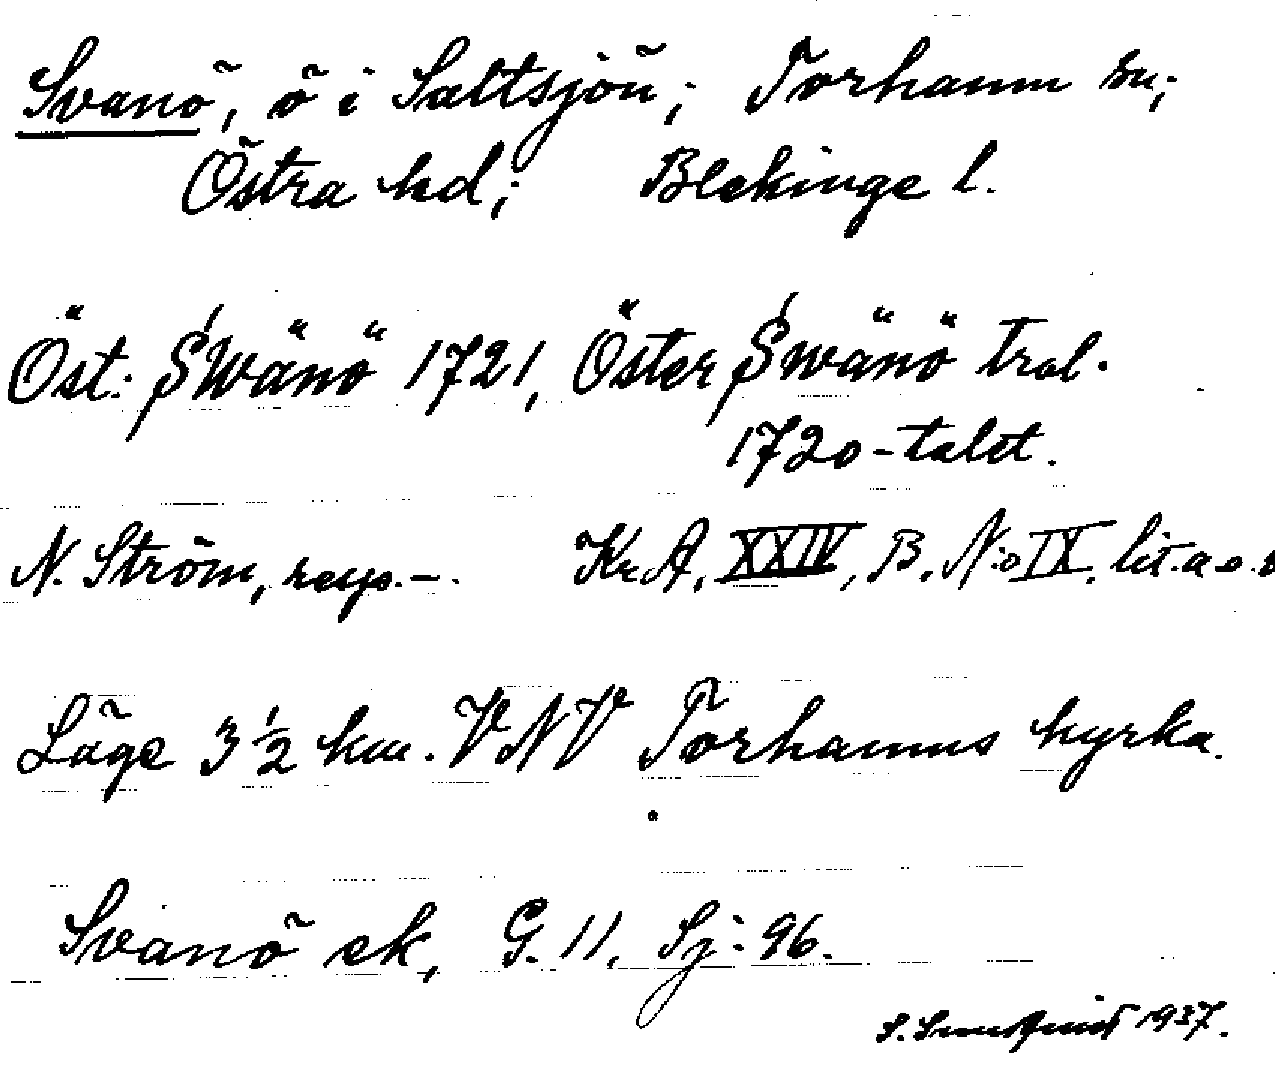 Svanö, ö i Saltsjön; Torhamn sn;
Östra hd; Blekinge l.
Öst. Swänö 1721, Öster Swänö trol.
1720-talet.
N. Ström, resp. -. Kr A, XXIV, B. N:o IX. lit. a o. b
Läge 3 ½ km. VNV Torhamns kyrka.
Svanö ek, G. 11, Sj: 96.
S. 1937.